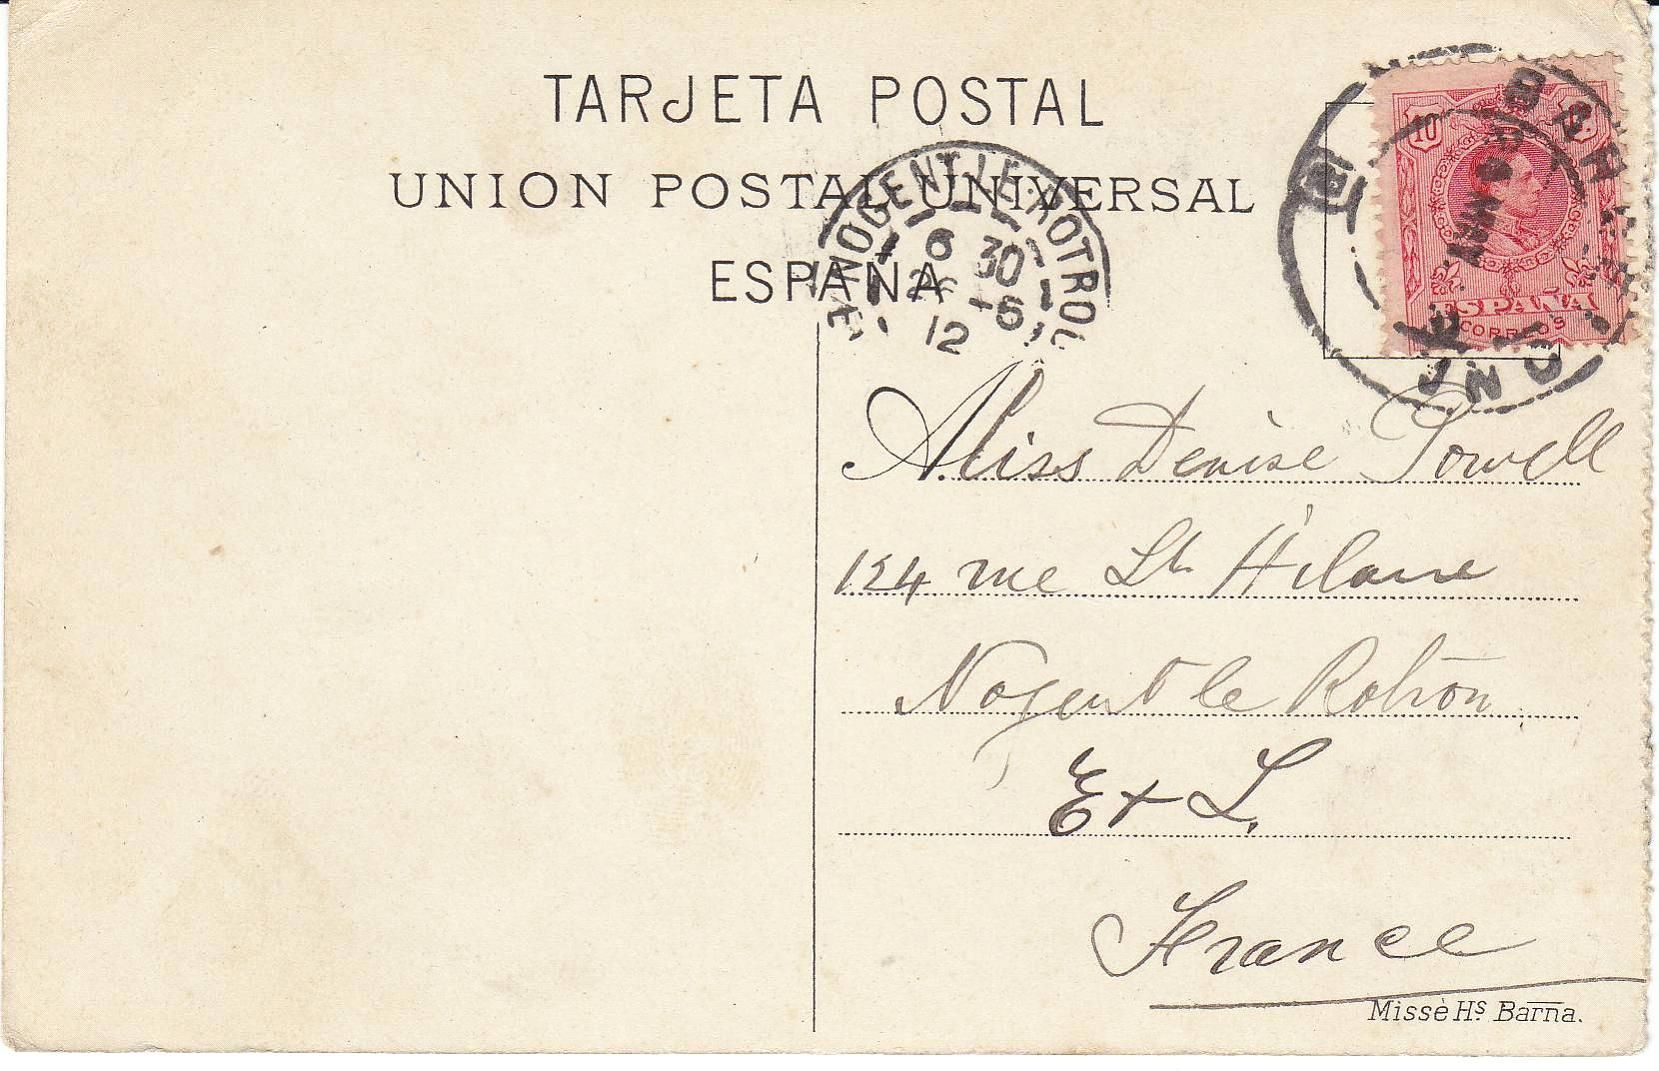 TARJETA POSTAL
UNION POSTAL UNIVERSAL
ESPAÑA
NOGENT-LE-ROTROU
6 30
26 -5
12
10
ESPAÑA
CORREOS
Miss Denise Powell
124 rue St. Hilaire
Nogent le Rotron
E & L.
France
Missé Hs. Barna.